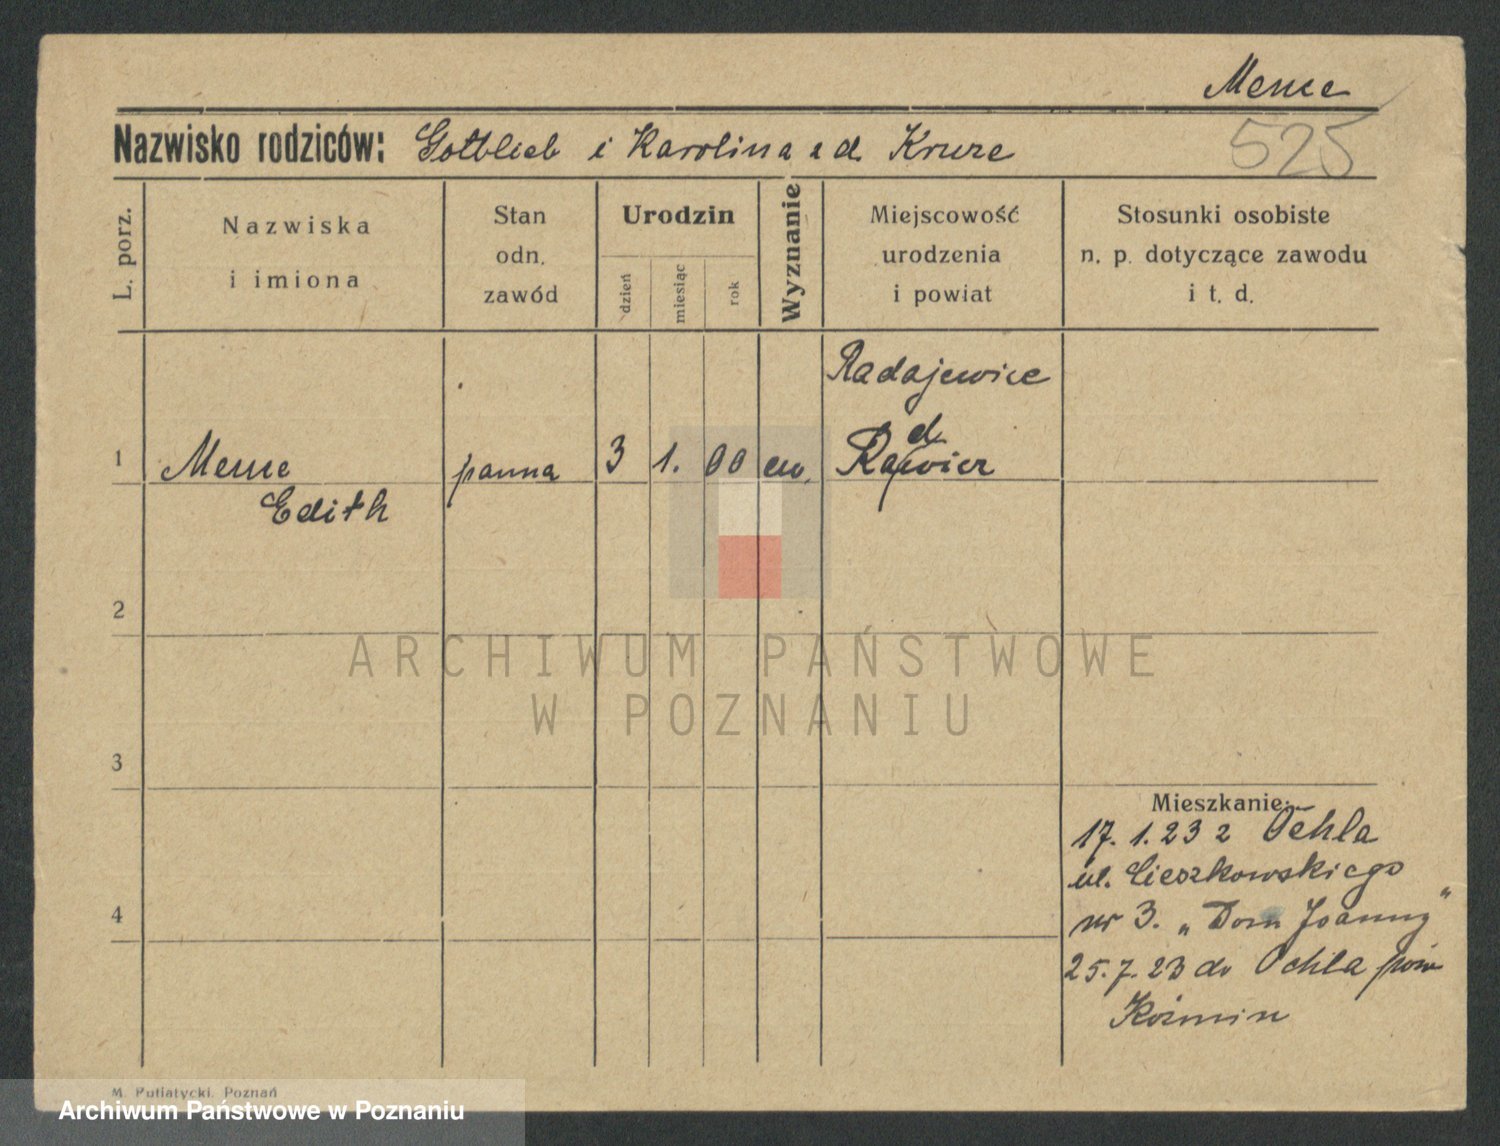 Mense
525
Nazwisko rodziców: Gottlieb i Karolina z d. Kruze
L. porz.
Nazwiska
i imiona
Stan
odn.
zawód
Urodzin
dzień
miesiąc
rok
Wyznanie
Miejscowość
urodzenia
i powiat
Stosunki osobiste
n. p. dotyczące zawodu
i t. d.
Radajewice
1 panna 3 1. 00 ew.
Edith
2
3
Mieszkanie:
17. 1. 23 z Ochla
ul. Cieszkowskiego
4 nr 3. „Dom Joanny"
25. 7. 23 do Ochla pow
Koźmin
M. Putiatycki. Poznań
ARCHIWUM PAŃSTWOWE
W POZNANIU
Archiwum Państwowe w Poznaniu